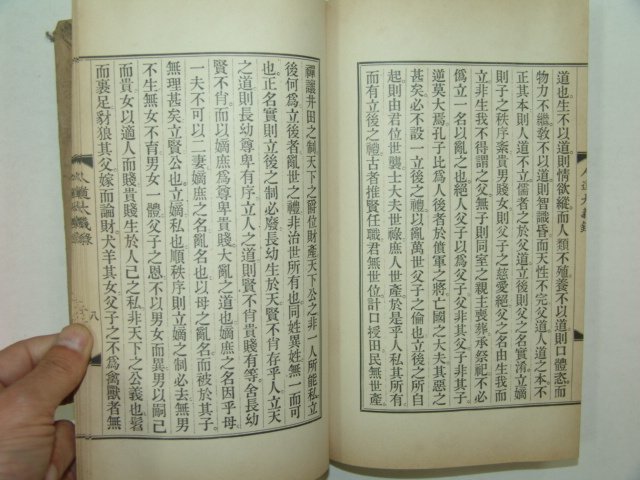 道也生不以道則情欲縱而人類不殖養不以道則口體恣而
物力不繼教不以道則智識昏而天性不完父道人道之本不
正其本則人道不立儒者之於父道立後父之名實淆立嫡
則子之秩序紊貴男賤女則父子之慈愛絕父之名由生我而
立非生我不得謂之父無子則同室之親主喪葬承祭祀不必
僞立一名以亂之也絕人父子以爲父子父非其父子非其子
逆莫大焉孔子比爲人後者於僨軍之將亡國之大夫其惡之
甚矣必不設一立後之禮自亂父子之倫也立後之禮所自
起則由君位世襲士大夫世祿庶人世產於是乎人私其所有
而有立後之禮古者推賢任職君無世位計口授田民無世產
禪讓井田之制天下之爵位財產天下公之非一人所能私立
後何爲立後者亂世之禮非治世所有也同姓異姓無一而可
也正名實則立後之制必廢長幼生於天賢不肖存乎人立天
之道則長幼尊卑有序立人之道則賢不肖貴賤有等舍長幼
賢不肖而以嫡庶爲尊卑貴賤大亂之道也嫡庶之名因乎母
一夫不可以二妻嫡庶之名亂名也以母之亂名而被於其子
無理甚矣立賢公也立嫡私也順秩序則立嫡之制必去無男
不生無女不育男女一體父子之恩不以男女而異男以嗣己
而貴女以適人而賤貴賤生於人己之私非天下之公義也髫
而裹足豺狼其父嫁而論財犬羊其女父子之不爲禽獸者無
人道大義錄
八
人道大義錄